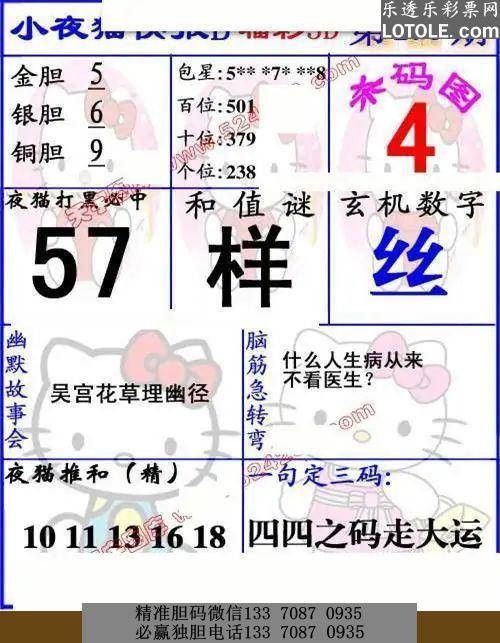 乐透乐彩票网
LOTOLE.COM
小夜猫快报D 福彩3D 第 期
金胆 5
银胆 6
铜胆 9
包星:5** *7* **8
百位:501
十位:379
个位:238
杀码图
4
夜猫打黑必中
57
和值谜
样
玄机数字
丝
幽默故事会
吴宫花草埋幽径
脑筋急转弯
什么人生病从来
不看医生?
夜猫推和(精)
10 11 13 16 18
一句定三码:
四四之码走大运
精准胆码微信133 7087 0935
必赢独胆电话133 7087 0935